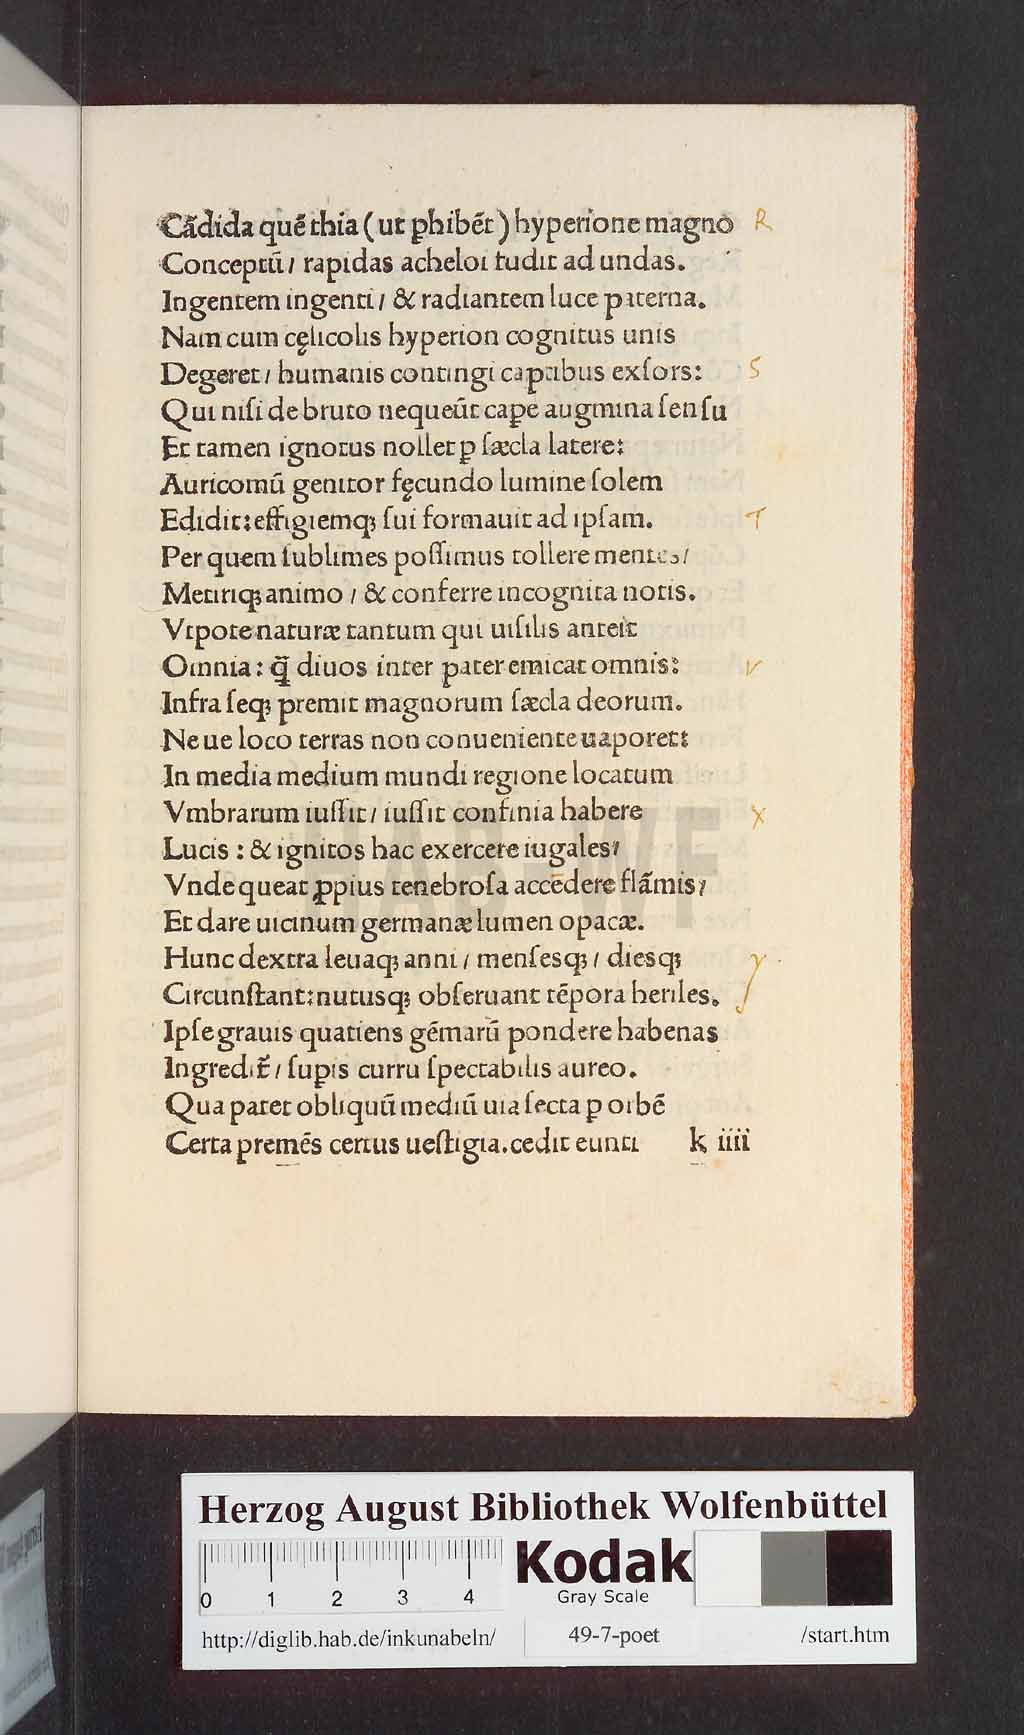 Cãdida quẽ thia ( ut ꝑhibẽt ) hyperione magno R
Conceptũ / rapidas acheloi fudit ad undas.
Ingentem ingenti / & radiantem luce paterna.
Nam cum cęlicolis hyperion cognitus unis
Degeret / humanis contingi captibus exſors: S
Qui niſi de bruto nequeũt caꝑe augmina ſenſu
Et tamen ignotus nollet ꝑ ſæcla latere:
Auricomũ genitor fęcundo lumine ſolem
Edidit: effigiemqꝫ ſui formauit ad ipſam. T
Per quem ſublimes poſſimus tollere mentes /
Metiriqꝫ animo / & conferre incognita notis.
Vtpote naturæ tantum qui uiſilis anteit
Omnia: q̃ diuos inter pater emicat omnis: V
Infra ſeqꝫ premit magnorum ſæcla deorum.
Ne ue loco terras non conueniente uaporet:
In media medium mundi regione locatum
Vmbrarum iuſſit / iuſſit confinia habere X
Lucis : & ignitos hac exercere iugales /
Vnde queat ꝓpius tenebroſa accedere flãmis /
Et dare uicinum germanæ lumen opacæ.
Hunc dextra leuaqꝫ anni / menſesqꝫ / diesqꝫ y
Circunſtant: nutusqꝫ obſeruant tẽpora heriles.
Ipſe grauis quatiens gẽmarũ pondere habenas
Ingredit̃ / ſuꝑis curru ſpectabilis aureo.
Qua patet obliquũ mediũ uia ſecta ꝑ orbẽ
Certa premẽs certus ueſtigia. cedit eunti k iiii
HAB WF
Herzog August Bibliothek Wolfenbüttel
0 1 2 3 4
Kodak
Gray Scale
http://diglib.hab.de/inkunabeln/ 49-7-poet /start.htm